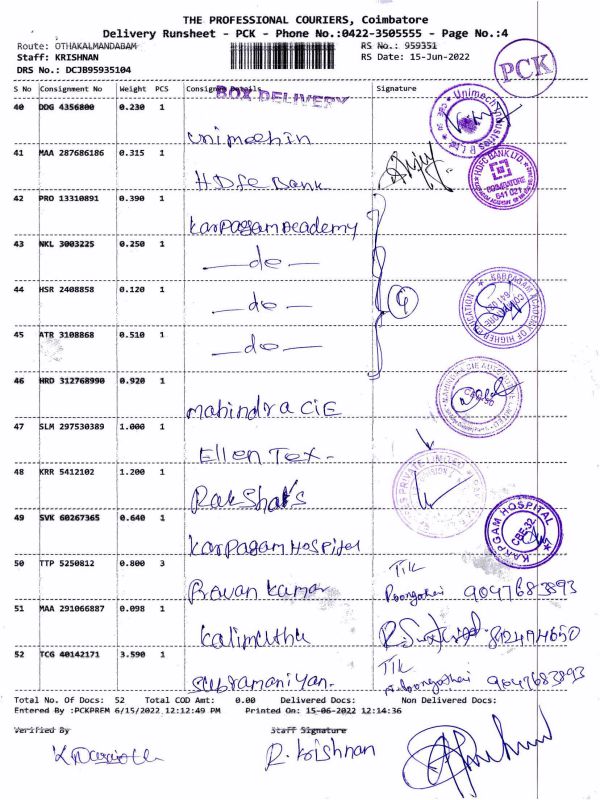 THE PROFESSIONAL COURIERS, Coimbatore
Delivery Runsheet - PCK - Phone No.:0422-3505555 - Page No.:4
Route: OTHAKALMANDABAM RS No.: 959351
Staff: KRISHNAN RS Date: 15-Jun-2022
DRS No.: DCJB95935104
PCK
S No Consignment No Weight PCS Consignee Details Signature
BOX DELIVERY
40 DDG 4356800 0.230 1
unimechin
41 MAA 287686186 0.315 1
HDFC Bank
HDFC BANK LTD.
COIMBATORE
641 021
42 PRO 13310891 0.390 1
Karpagam Academy
43 NKL 3003225 0.250 1
—do—
44 HSR 2408858 0.120 1
—do—
KARPAGAM ACADEMY OF HIGHER EDUCATION
45 ATR 3108868 0.510 1
—do—
46 HRD 312768990 0.920 1
mahindra CIE
47 SLM 297530389 1.000 1
Ellen Tex-
48 KRR 5412102 1.200 1
Rakshak's
49 SVK 60267365 0.640 1
Karpagam Hospital
KARPGAM HOSPITAL
CBE-32
50 TTP 5250812 0.800 3
Pravan Kumar
9047683893
51 MAA 291066887 0.098 1
Kalimuthu
52 TCG 40142171 3.590 1
Subramaniyan.
9047683893
Total No. Of Docs: 52 Total COD Amt: 0.00 Delivered Docs: Non Delivered Docs:
Entered By :PCKPREM 6/15/2022 12:12:49 PM Printed On: 15-06-2022 12:14:36
Verified By Staff Signature
R. Krishnan